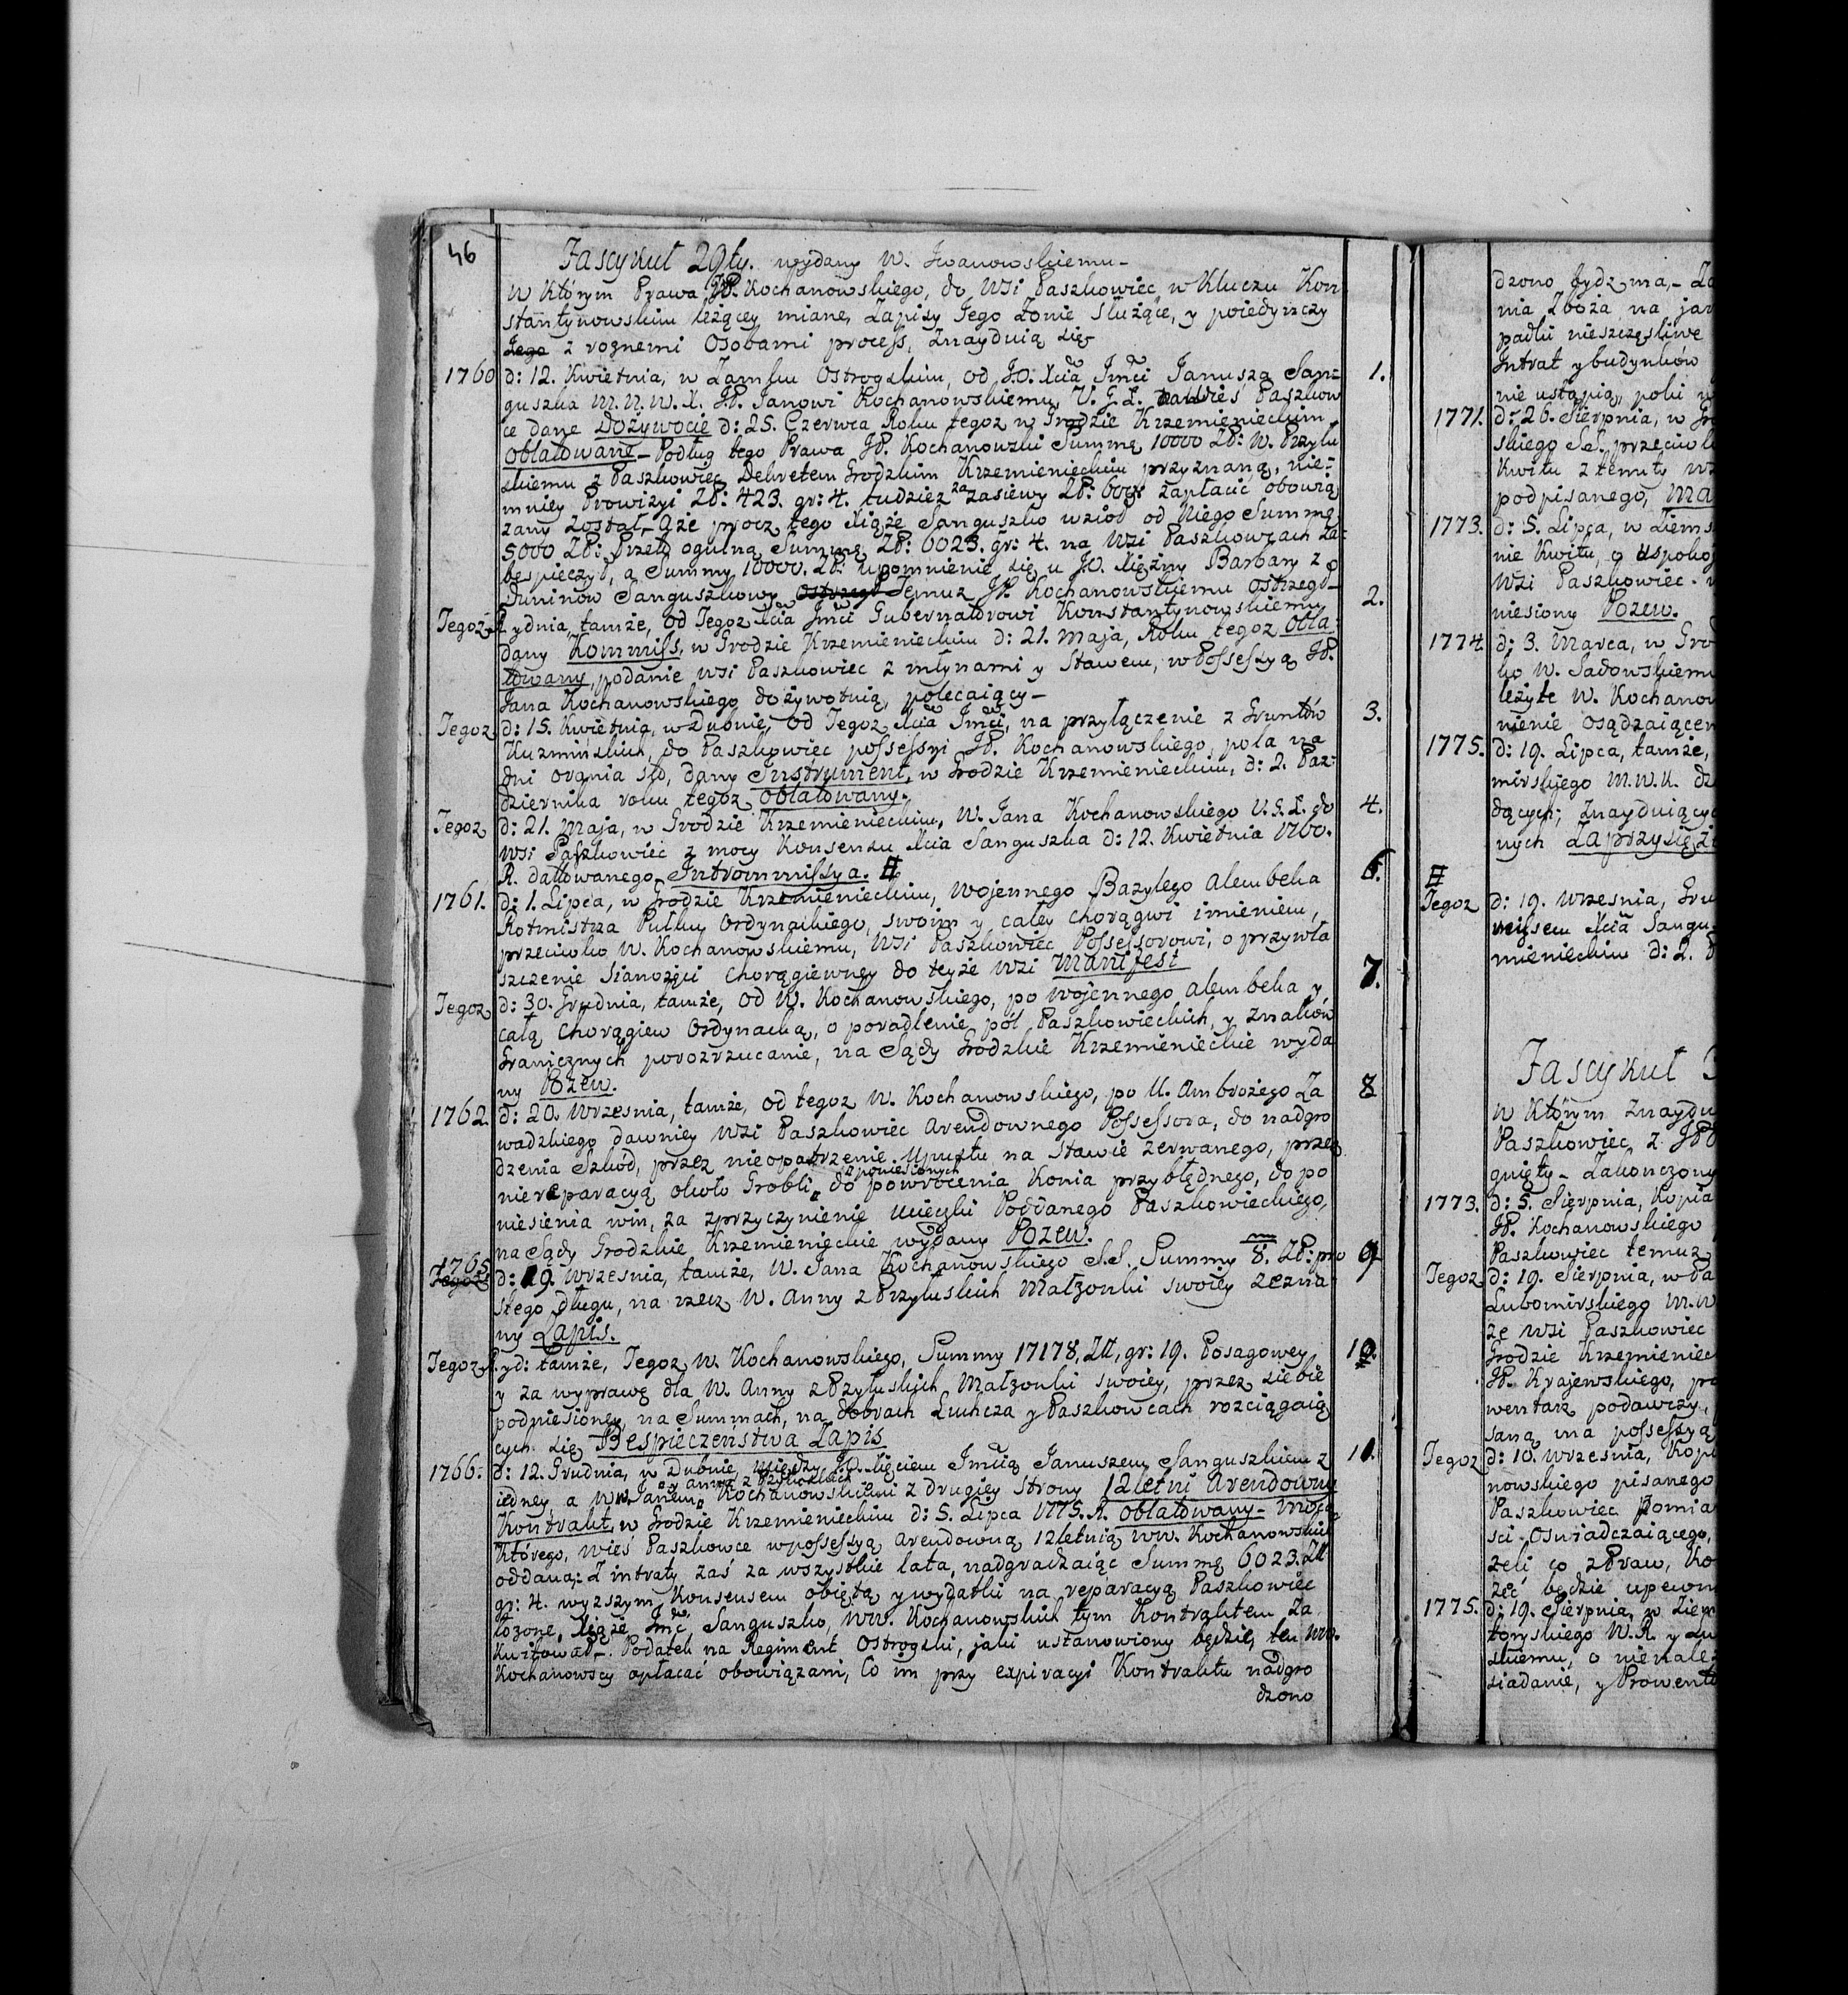 46
Fascykuł 29ty. wydany W. Iwanowskiemu-
W którym Prawa JP. Kochanowskiego, do Wsi Paszkowiec w Kluczu Kon
stantynowskim leżącey miane, Zapisy Jego Żonie służące, y poiedynczy
Jego z roznemi Osobami process, znayduią się-
1760 d: 12. Kwietnia, w Zamku Ostrogskim, od J.O. Xcia Jmći Janusza San= 1.
guszka M.N.W.X. JP. Janowi Kochanowskiemu V.G.Ł. na Wieś Paszkow
ce dane Dożywocie d: 25. Czerwca Roku tegoz w Grodzie Krzemienieckim
oblatowane- Podług tego Prawa JP. Kochanowski Summę 10000 ZP: W. Przyłu
skiemu z Paszkowiec Dekretem Grodzkim Krzemienieckim przyznaną, nie=
mniey Prowizyi ZP: 423. gr: 4. tudziez za zasiewy ZP: 600 zapłacić obowią
zany został- A że procz tego Xiąże Sanguszko wzioł od Niego Summę
5000 ZP: Przeto ogulną Summę ZP: 6023. gr: 4. na Wsi Paszkowcach za=
bespieczył, a Summy 10000. ZP: upomnienie się u J.O. Xiężny Barbary z
Duninow Sanguszkowy ostrzegł Temuz JP. Kochanowskiemu ostrzegł-
Tegoż R. y dnia tamże, od Tegoz Xcia Jmći Gubernatorowi Konstantynowskiemu 2.
dany Kommiss, w Grodzie Krzemienieckim d: 21. Maja, Roku tegoz obla=
towany, podanie wsi Paszkowiec z młynami y Stawem, w Possessyą JP.
Jana Kochanowskiego dożywotnią, polecaiący-
Tegoz d: 15. Kwietnia, w Dubnie, od Tegoz Xcia Jmći, na przyłączenie z Gruntów 3.
Kuzmińskich, do Paszkowiec possessyi JP. Kochanowskiego, pola na
dni orania sto, dany Instrument, w Grodzie Krzemienieckim, d: 2. Paź=
dziernika roku tegoz oblatowany.
Tegoz d: 21. Maja, w Grodzie Krzemienieckim, W. Jana Kochanowskiego V.G.Ł. do 4.
wsi Paszkowiec z mocy Konsensu Xcia Sanguszka d: 12. Kwietnia 1760.
R. dattowanego Intrommissya. #
1761. d: 1. Lipca, w Grodzie Krzemienieckim, Wojennego Bazylego Alembeka 6.
Rotmistrza Pułku Ordynackiego, swoim y całey chorągwi imieniem,
przeciwko W. Kochanowskiemu, Wsi Paszkowiec Possessorowi, o przywła
szczenie Sianożęci Chorągiewney do teyże Wsi Manifest
Tegoz d: 30. Grudnia, tamże, od W. Kochanowskiego, po Wojennego Alembeka y 7.
całą Chorągiew Ordynacką, o poradlenie pól Paszkowieckich, y znaków
Granicznych porozrzucanie, na Sądy Grodzkie Krzemienieckie wyda
ny Pozew.
1762. d: 20. Września, tamże, od tegoz W. Kochanowskiego, po U. Ambrożego Za 8
wadzkiego dawniey Wsi Paszkowiec Arendownego Possessora, do nadgro
dzenia Szkód, przez nieopatrzenie Upustu na Stawie zerwanego, przez
poniesionych
niereparacyą około Grobli, do powrócenia Konia przybłędnego, do po
niesienia win, za zprzyczynienie ucieczki Poddanego Paszkowieckiego,
na Sądy Grodzkie Krzemienieckie wydany Pozew.
1765 Tegoz d: 19. Września, tamże, W. Jana Kochanowskiego S.S. Summy 8. ZP: pro 9
stego długu, na rzecz W. Anny z Przyłuskich Małżonki swoiey zezna
ny Zapis.
Tegoz R. y d: tamże, Tegoz W. Kochanowskiego, Summy 17178, Złł, gr: 19. Posagowey 10.
y za wyprawę dla W. Anny z Przyłuskich Małżonki swoiey, przez siebie
podniesioney, na Summach, na dobrach Łuchcza y Paszkowcach rozciągaią
cych się Bespieczeństwa Zapis
1766. d: 12. Grudnia, w Dubnie, między J.O. Xięciem Jmćią Januszem Sanguszkiem z 11.
y Anną z Przyłuskich
iedney, a WW. Janem, Kochanowskiemi z drugiey Strony 12letni Arendowny
Kontrakt, w Grodzie Krzemienieckim d: 5. Lipca 1775. R. oblatowany- Mocą
Którego, wieś Paszkowce w possessyą arendowną 12letnią WW. Kochanowskim
oddana: Z intraty zaś za wszystkie lata, nadgradzaiąc Summę 6023. Złł
gr: 4. wyzszym Konsensem obiętą y wydatki na reparacyą Paszkowiec
łożone, Xiąże Jmć, Sanguszko, WW. Kochanowskich tym Kontraktem za
kwitował- Podatek na Regiment Ostrogski, jaki ustanowiony będzie, ten WW.
Kochanowscy opłacać obowiązani, Co im przy expiracyi Kontraktu nadgro
dzono
dzono bydz ma,-
nia Zboża na
padki nieszczęsliwe
Intrat y budynków
nie ustąpią, poki
1771. d: 26. Sierpnia, w
skiego S.S. przeciwko
Kwitu z temuż
podpisanego,
1773. d: 5. Lipca, w Ziems
nie Kwitu, o uspokoj
Wsi Paszkowiec.
niesiony Pozew.
1774. d: 3. Marca, w Gro
ko W. Sadowskiemu
leżyte W. Kochanow
nienie osądzaiącem
1775. d: 19. Lipca, tamże,
mirskiego M.W.K.
dących; Znayduiący
nych Zaprzysięże
#
Tegoz d: 19. Września,
Xcia Sangu
mienieckim d: 2.
Fascykuł 3
W Którym znaydu
Paszkowiec, z JP
gnięty- Zakończony
1773. d: 5. Sierpnia, Kopia
JP. Kochanowskiego
Paszkowiec temuz
Tegoz d: 19. Sierpnia, w
Lubomirskiego M.W
ze Wsi Paszkowiec
Grodzie Krzemieniec
JP. Krajewskiego,
wentarz podawczy,
saną, ma possessyą
Tegoz d: 10. Września, Kopi
nowskiego pisanego
Paszkowiec Pomia
sci Oswiadczaiącego,
żeli co z Praw,
żeć będzie upewni
1775. d: 19. Sierpnia, w Ziem
toryskiego W.R. y Lu
skiemu, o nienale
siadanie, y Prowent